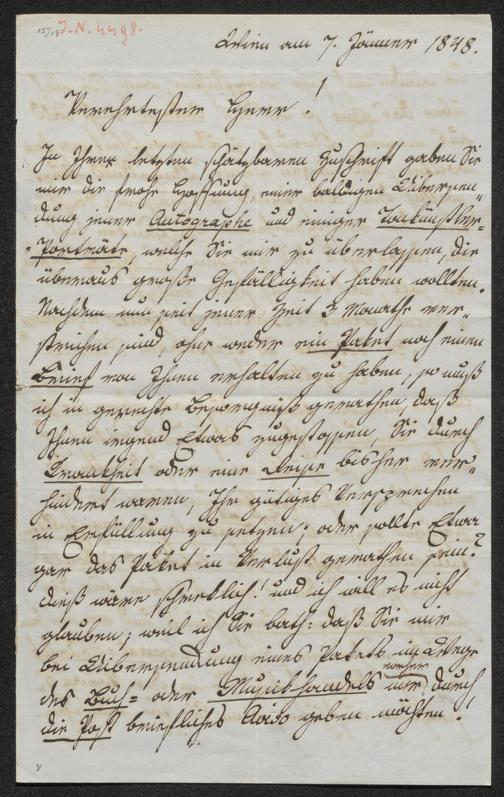 157/13 I. N. 4498.
Wien am 7. Jänner 1848.
Verehrtester Herr!
In Ihrer letzten schätzbaren Zuschrift gaben Sie
mir die frohe Hoffnung, einer baldigen Uibersen„
dung jener Autographe und einiger Tonkünstler=
=Porträte, welche Sie mir zu überlassen, die
überaus große Gefälligkeit haben wollten.
Nachdem nun seit jener Zeit 3 Monathe ver„
strichen sind, ohne weder ein Paket noch einen
Brief von Ihnen erhalten zu haben, so muß
ich in gerechte Besorgniß gerathen, daß
Ihnen irgend Etwas zugestossen, Sie durch
Krankheit oder eine Reise bisher ver„
hindert waren, Ihr gütiges Versprechen
in Erfüllung zu setzen; oder sollte Etwa
gar das Paket in Verlust gerathen sein?
dieß wäre schrecklich! und ich will es nicht
glauben; weil ich Sie bath: daß Sie mir
bei Uibersendung eines Pakets im Wege
des Buch= oder Musikhandels vorher nur durch
die Post briefliches Aviso geben möchten!